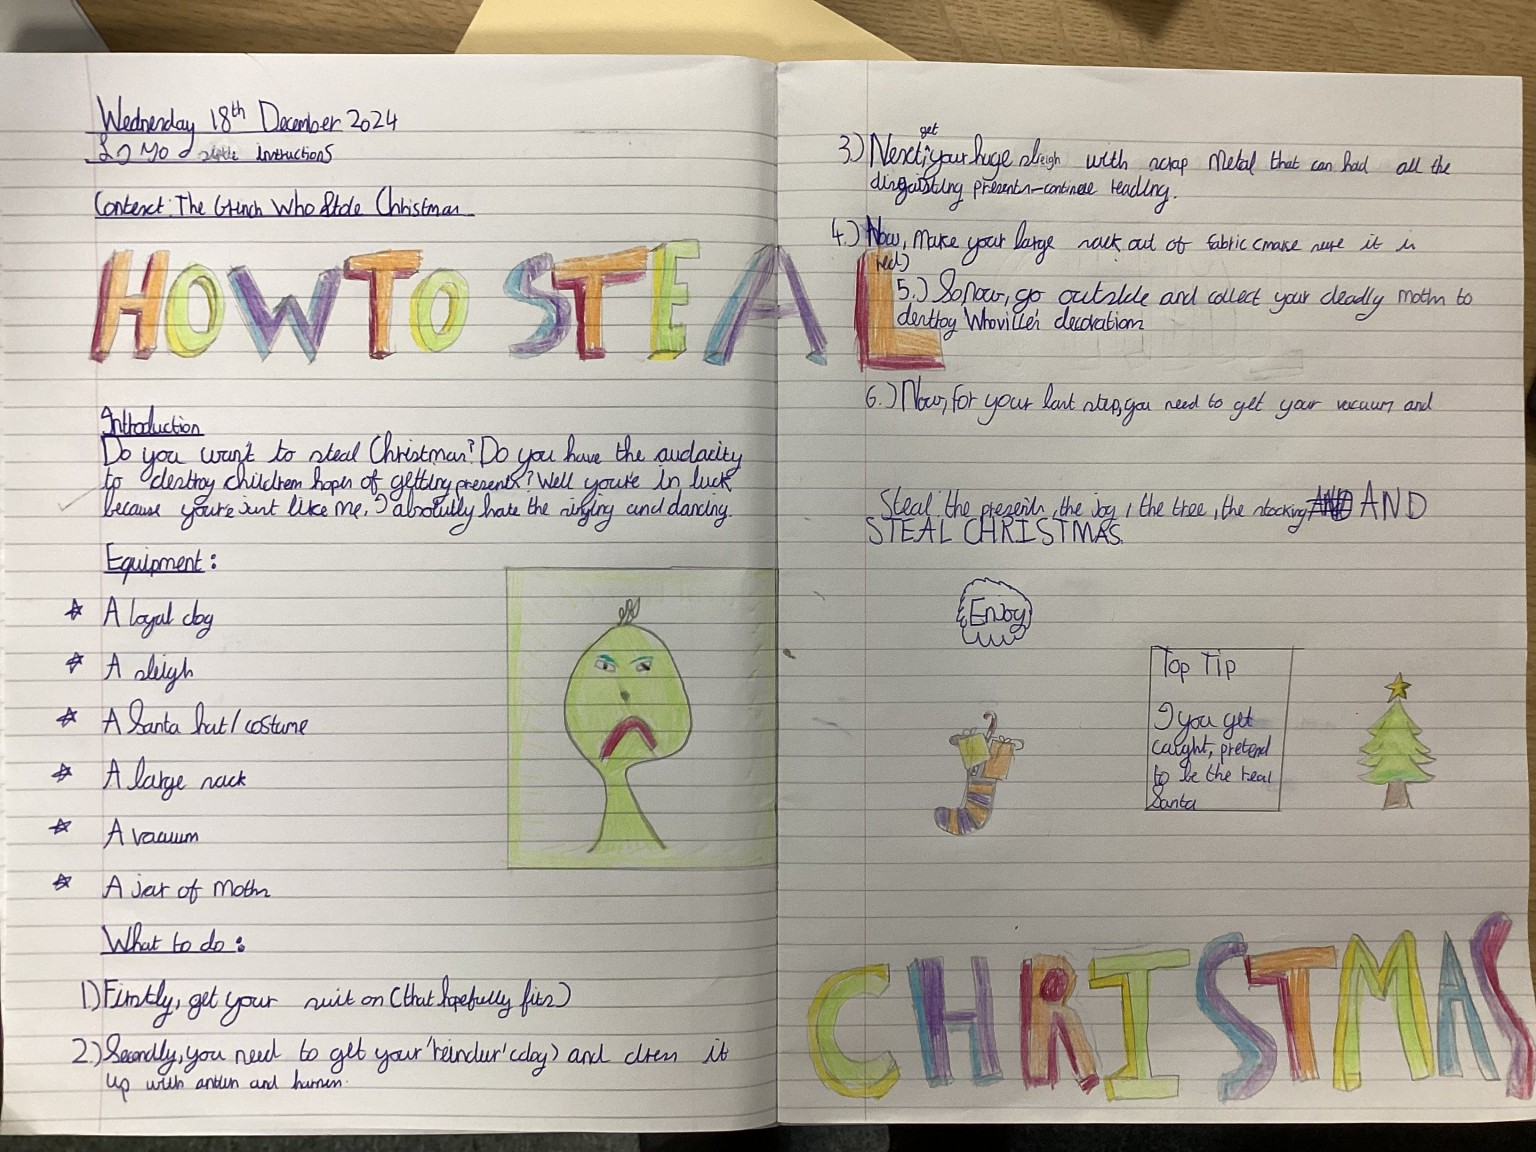 Wednesday 18th December 2024
instructions
Context: The Grinch Who Stole Christmas
HOW TO STEAL
Introduction
Do you want to steal Christmas? Do you have the audacity
to destroy children hopes of getting presents? Well you're in luck
because you're just like me, I absolutly hate the singing and dancing.
Equipment:
A loyal dog
A sleigh
A Santa hat/costume
A large sack
A vacuum
A jar of moths
What to do:
1) Firstly, get your suit on (that hopefully fits)
2.) Secondly, you need to get your 'reindeer' (dog) and dress it
up with antlers and harness.
get
3.) Next, your huge sleigh with scrap metal that can had all the
disgusting presents-continue reading.
4.) Now, make your large sack out of fabric (make sure it is
red)
5.) So now, go outside and collect your deadly moths to
destroy Whoville's decorations
6.) Now, for your last step, you need to get your vacuum and
Steal the presents, the joy, the tree, the stocking AND
STEAL CHRISTMAS.
Enjoy
Top Tip
I you get
caught, pretend
to be the real
Santa
CHRISTMAS